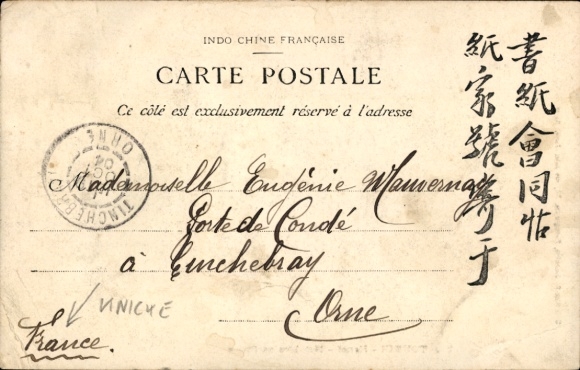 INDO CHINE FRANÇAISE
CARTE POSTALE
Ce côté est exclusivement réservé à l'adresse
書紙會同帖
紙家號寄于
TINCHEBRAY
ORNE
OCT
04
Mademoiselle Eugénie Mauvernay
Porte de Condé
à Tinchebray
Orne
France.